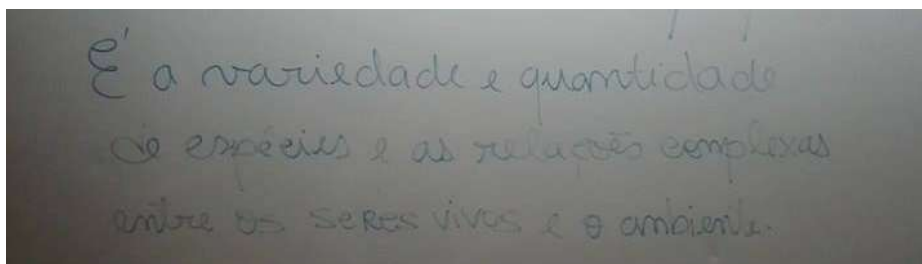 É a variedade e quantidade
de espécies e as relações complexas
entre os seres vivos e o ambiente.